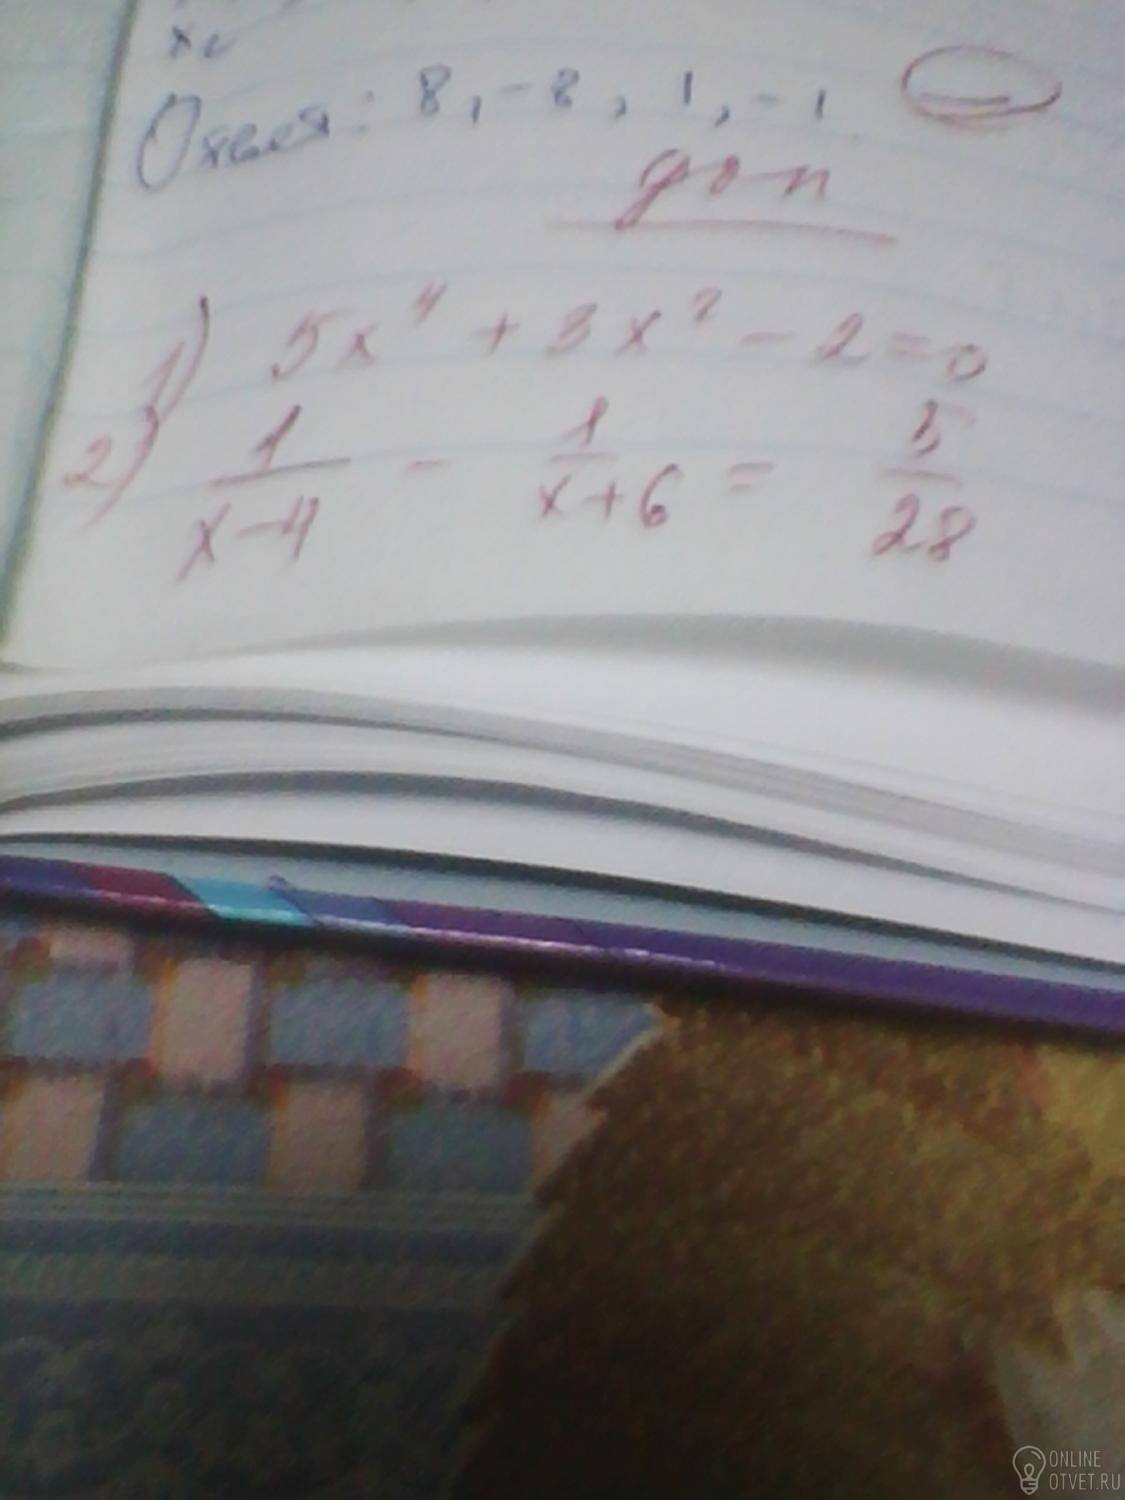 x₂
Ответ: 8, -8, 1, -1
доп
1) 5x⁴ + 3x² - 2 = 0
2) 1/(x-4) - 1/(x+6) = 5/28
ONLINE
OTVET.RU